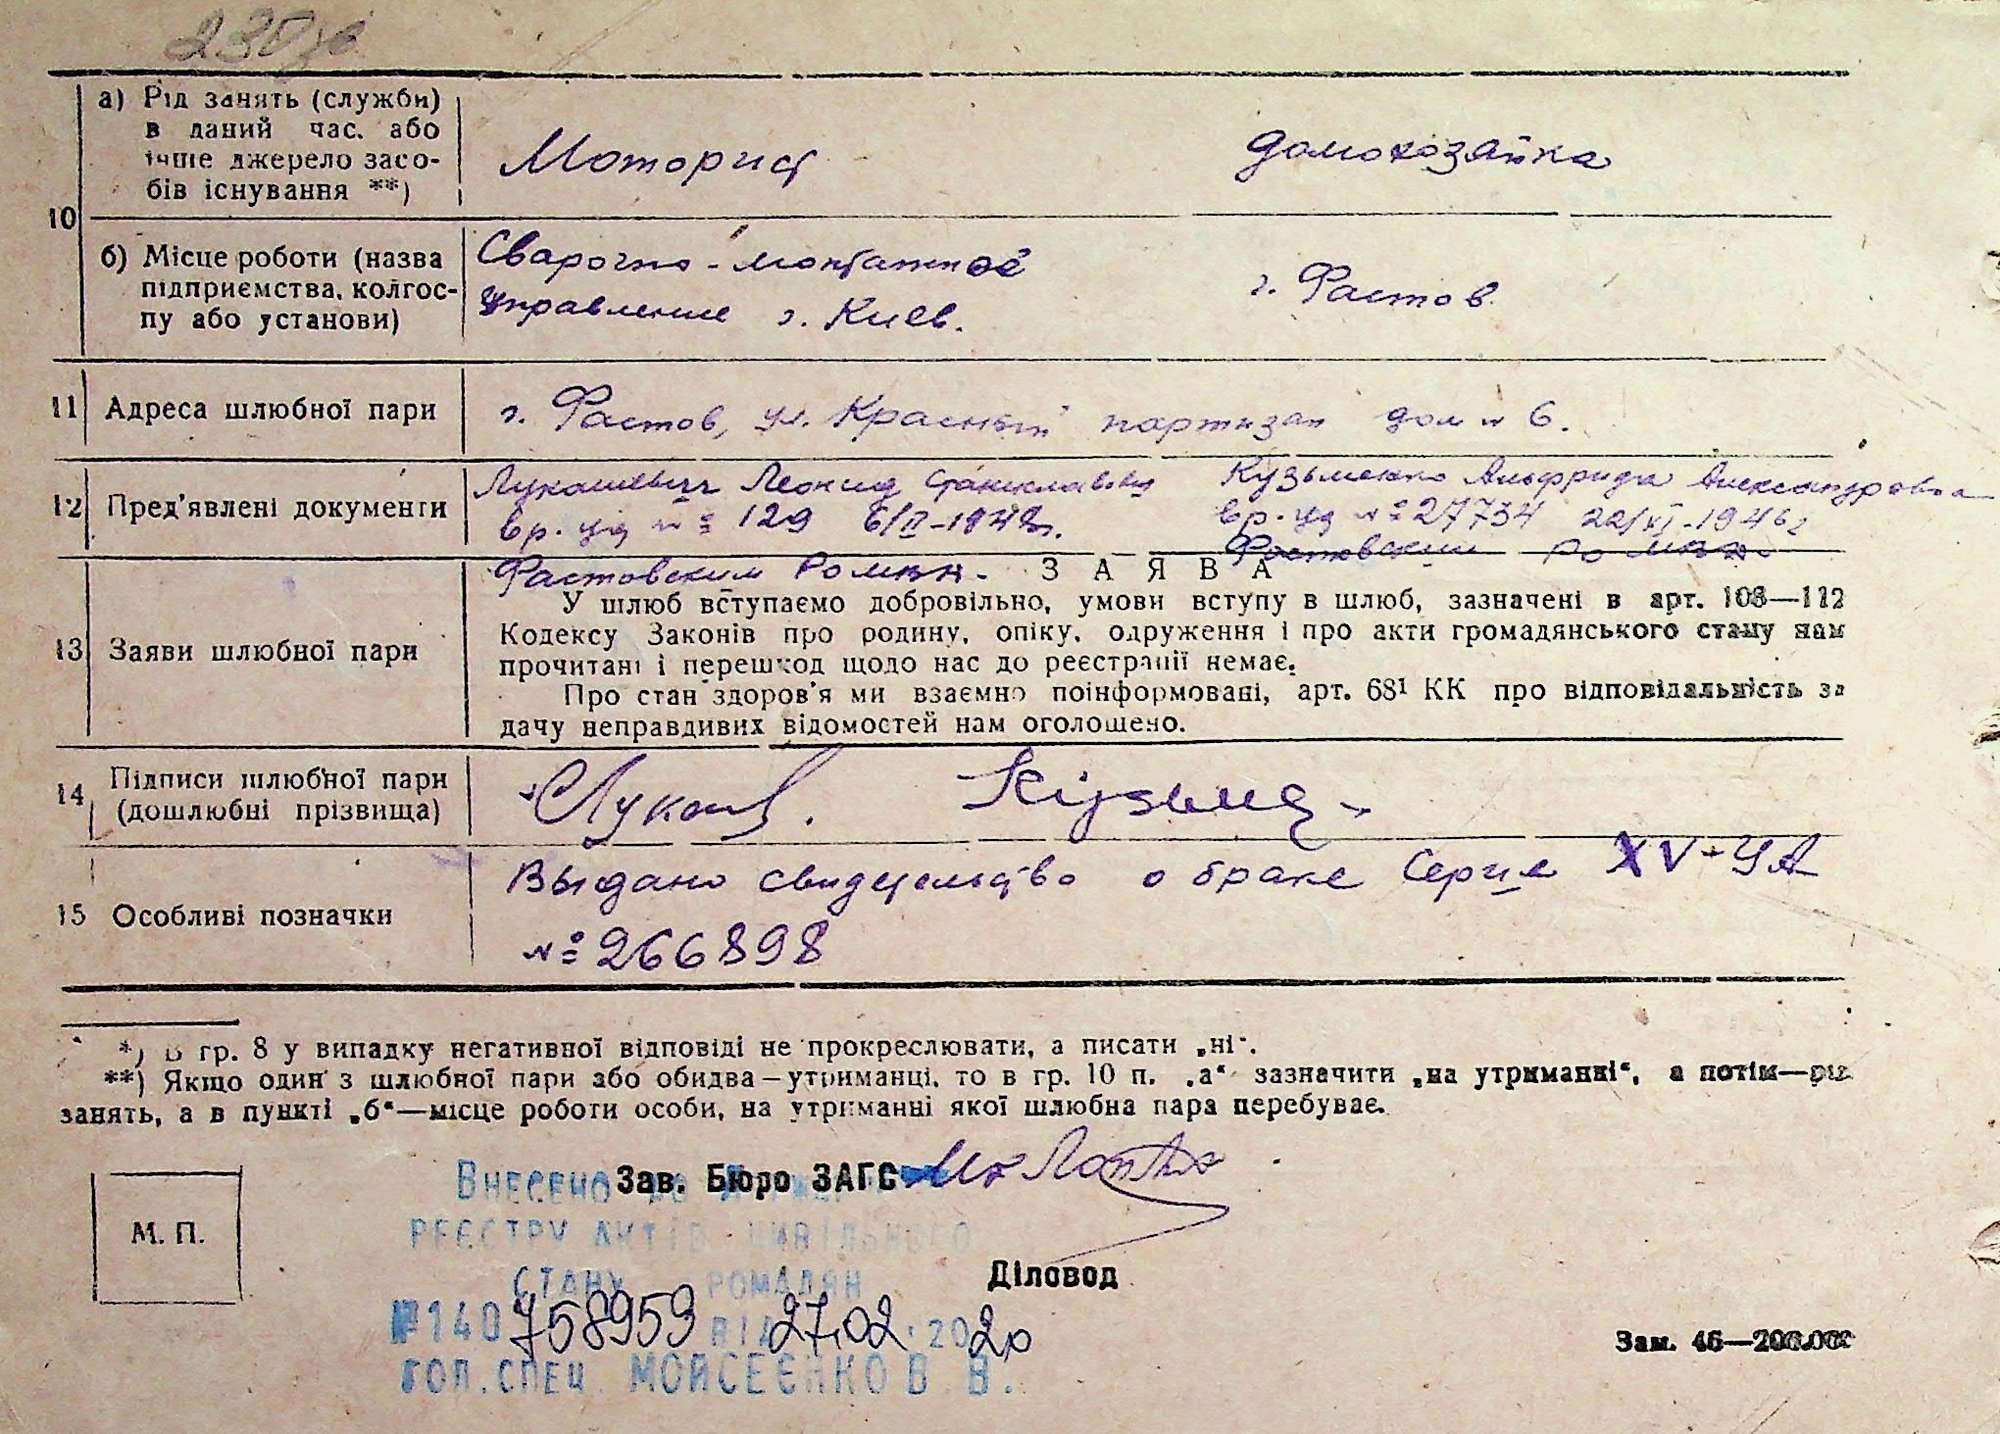 230
а) Рід занять (служби)
в даний час. або
інше джерело засо-
бів існування **)
Моторист
домохозяйка
10
б) Місце роботи (назва
підприємства, колгос-
пу або установи)
Сварочно-монтажное
Управление г. Киев.
г. Фастов
11 Адреса шлюбної пари
г. Фастов, ул. Красный партизан дом № 6.
12 Пред'явлені документи
Лукашевич Леонид Станиславович
вр. уд № 129 6/II-1948г.
Фастовским РОМВД.
Кузьменко Альфрида Александровна
вр. уд № 27734 22/XI-1946г
Фастовским РОМВД
13 Заяви шлюбної пари
ЗАЯВА
У шлюб вступаємо добровільно, умови вступу в шлюб, зазначені в арт. 108—112
Кодексу Законів про родину, опіку, одруження і про акти громадянського стану нам
прочитані і перешкод щодо нас до реєстрації немає.
Про стан здоров'я ми взаємно поінформовані, арт. 68¹ КК про відповідальність за
дачу неправдивих відомостей нам оголошено.
14 Підписи шлюбної пари
(дошлюбні прізвища)
15 Особливі позначки
Выдано свидетельство о браке Серие XV-УА
№ 266898
*) В гр. 8 у випадку негативної відповіді не прокреслювати, а писати „ні“.
**) Якщо один з шлюбної пари або обидва—утриманці, то в гр. 10 п. „а“ зазначити „на утриманні“, а потім—рід
занять, а в пункті „б“—місце роботи особи, на утриманні якої шлюбна пара перебуває.
М. П.
Зав. Бюро ЗАГС
Діловод
ВНЕСЕНО ДО ДЕРЖ.
РЕЄСТРУ АКТІВ ЦИВІЛЬНОГО
СТАНУ ГРОМАДЯН
№140758959 ВІД 27.02.2020
ГОЛ.СПЕЦ. МОЙСЕЄНКО В.В.
Зам. 46—200.000